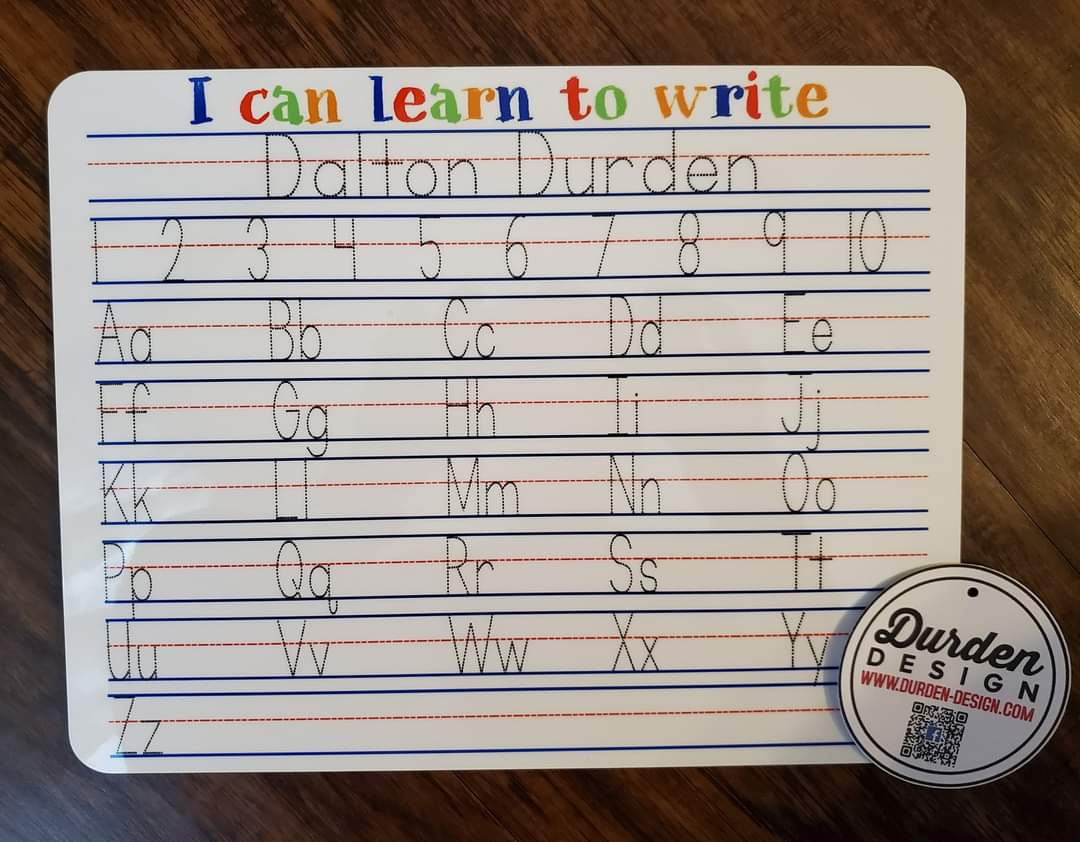 I can learn to write
Dalton Durden
1 2 3 4 5 6 7 8 9 10
Aa Bb Cc Dd Ee
Ff Gg Hh Ii Jj
Kk Ll Mm Nn Oo
Pp Qq Rr Ss Tt
Uu Vv Ww Xx Yy
Zz
Durden
DESIGN
WWW.DURDEN-DESIGN.COM
f